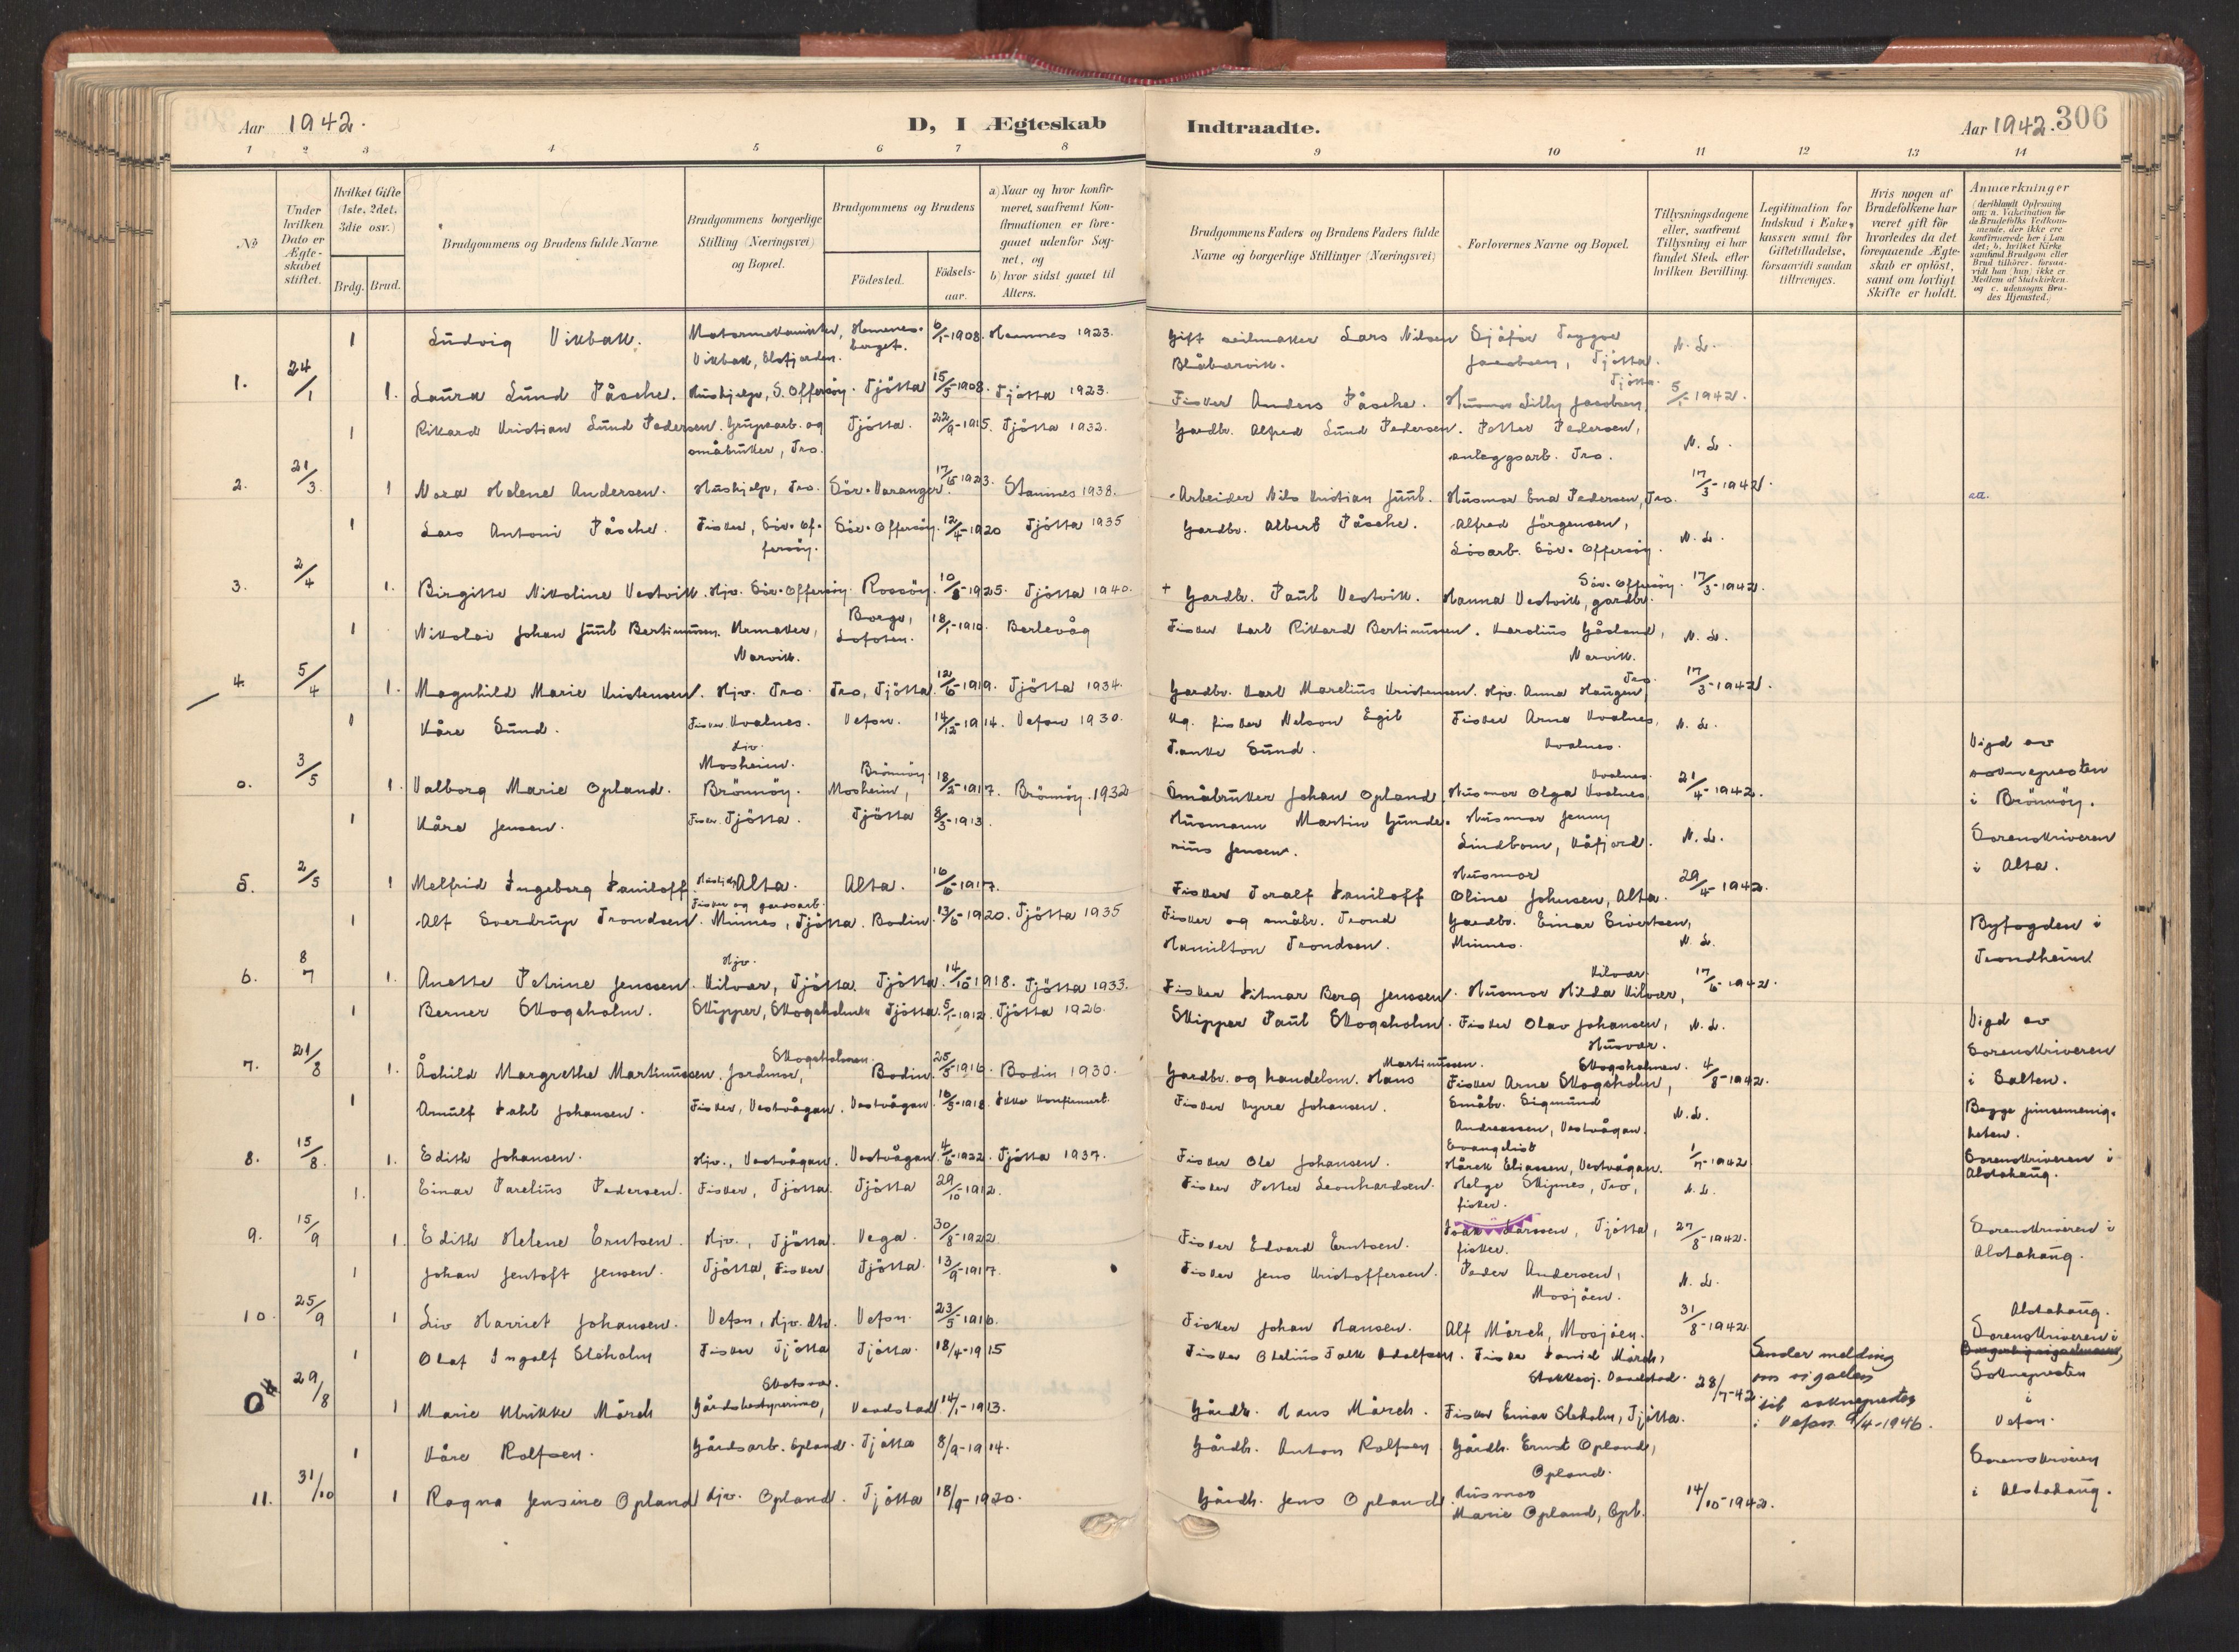 Aar 1942.
D, I Ægteskab Indtraadte.
Aar 1942. 306
1 2 3 4 5 6 7 8 9 10 11 12 13 14
No
Under hvilken Dato er Ægteskabet stiftet.
Hvilket Gifte (1ste, 2det, 3die osv.)
Brdg. Brud.
Brudgommens og Brudens fulde Navne
Brudgommens borgerlige Stilling (Næringsvei) og Bopæl.
Brudgommens og Brudens
Födested.
Födsels-aar.
a) Naar og hvor konfirmeret, saafremt Konfirmationen er foregaaet udenfor Sognet, og
b) hvor sidst gaaet til Alters.
Brudgommens Faders og Brudens Faders fulde Navne og borgerlige Stillinger (Næringsvei)
Forlovernes Navne og Bopæl.
Tillysningsdagene eller, saafremt Tillysning ei har fundet Sted, efter hvilken Bevilling.
Legitimation for Indskud i Enkekassen samt for Giftetilladelse, forsaavidt saadan tiltrænges.
Hvis nogen af Brudefolkene har været gift för hvorledes da det foregaaende Ægteskab er oplöst, samt om lovligt Skifte er holdt.
Anmærkninger
(deriblandt Oplysning om: a. Vakcination för de Brudefolks Vedkommende, der ikke ere konfirmerede her i Landet; b. hvilket Kirkesamfund Brudgom eller Brud tilhörer, forsaavidt han (hun) ikke er Medlem af Statskirken og c. udensogns Brudes Hjemsted.)
1 Ludvig Vikbakk. Vikbakk, Elsfjorden. Hemnesberget. 6/1-1908. Hemnes 1923. Gift seilmaker Lars Nilsen Blåbærvik. Sjåfør Trygve Jacobsen, Tjötta. N. L.
1. 24/1 1. Laura Lund Påsche. Hushjelp, S. Offersöy. Tjötta 15/5-1908. Tjötta 1923. Fisker Anders Påsche. Husmor Lilly Jacobsen, Tjötta. 5/1-1942.
1 Rikard Kristian Lund Pedersen. Gruvearb. og småbruker, Tro. Tjötta. 22/9-1915. Tjötta 1932. Gardbr. Alfred Lund Pedersen. Petter Pedersen, anleggsarb. Tro. N. L.
2. 21/3. 1 Nora Helene Andersen. Hushjelp, Tro. Sör-Varanger. 1923. Stamnes 1938. Arbeider Nils Kristian Juul. Husmor Ena Pedersen, Tro. 17/3-1942.
1 Lars Antoni Påsche. Fisker, Sör-Offersöy. Sör-Offersöy. 12/4-1920 Tjötta 1935 Gardbr. Albert Påsche. Alfred Jörgensen, Lösarb. Sör-Offersöy. N. L.
3. 2/4 1. Birgitte Nikoline Vestvik. Hjv. Sör-Offersöy. Rossöy. 10/8-1925. Tjötta 1940. + Gardbr. Paul Vestvik. Hanna Vestvik, gardbr. Sör-Offersöy. 17/3-1942.
1 Nikolai Johan Juul Bertinussen. Urmaker, Narvik. Borge, Lofoten. 18/1-1910. Berlevåg Fisker Karl Rikard Bertinussen. Karolius Gåsland, Narvik. N. L.
4. 5/4 1. Magnhild Marie Kristensen. Hjv. Tro. Tro, Tjötta. 12/6-1919. Tjötta 1934. Gardbr. Karl Marelius Kristensen. Hjv. Anna Haugen, Tro. 17/3-1942.
1 Kåre Sund. Fisker Kvalnes. Vefsn. 14/12-1914. Vefsn 1930. Kg. fisker Nelson Egil Tanke Sund. Fisker Arne Kvalnes, Kvalnes. N. L. Vigd av
0. 3/5 1. Valborg Marie Opland. Mosheim. Brönnöy. Mosheim, Brönnöy. 18/2-1917. Brönnöy. 1932 Småbruker Johan Opland. Husmor Olga Kvalnes, Kvalnes. 21/4-1942. soknepresten i Brönnöy.
1 Kåre Jensen. Fisker. Tjötta. Tjötta 8/3-1913. Husmann Martin Gunderius Jensen. Husmor Jenny Lindbom, Kåfjord. N. L. Sorenskriveren i Alta.
5. 2/5 1 Melfrid Ingeborg Daniloff. Hushjelp Alta. Alta. 16/6-1917. Fisker Toralf Daniloff Husmor Oline Johnsen, Alta. 29/4-1942.
1 Alf Sverdrup Trondsen. Fisker og gardsarb. Minnes, Tjötta. Bodin. 13/6-1920. Tjötta 1935 Fisker og småbr. Trond Hamilton Trondsen. Gardbr. Einar Sivertsen, Minnes. N. L. Byfogden i Trondheim
6. 8/7 1. Anette Petrine Jenssen. Hjv. Kilvær, Tjötta. Tjötta. 14/10-1918. Tjötta 1933. Fisker Ditmar Berg Jenssen. Husmor Hilda Kilvær, Kilvær. 17/6-1942.
1 Berner Skogsholm. Skipper, Skogsholmen Tjötta. 5/1-1912. Tjötta 1926. Skipper Paul Skogsholm. Fisker Olav Johansen, Husvær. N. L. Vigd av Sorenskriveren i Salten.
7. 21/8 1. Åshild Margrethe Martinussen. Jordmor, Skogsholmen. Bodin. 25/5-1916. Bodin 1930. Gardbr. og handelsm. Hans Martinussen. Fisker Arne Skogsholm, Skogsholmen. 4/8-1942.
1 Arnulf Dahl Johansen. Fisker, Vestvågan. Vestvågan. 16/5-1918. Ikke konfirmert. Fisker Kyrre Johansen. Småbr. Sigmund Andreassen, Vestvågan. N. L. Begge pinsemenigheten.
8. 15/8. 1. Edith Johansen. Hjv., Vestvågan. Vestvågan. 4/6-1922. Tjötta 1937. Fisker Ole Johansen. Evangelist Hårek Eliassen, Vestvågan. 1/7-1942 Sorenskriveren i Alstahaug.
1. Einar Parelius Pedersen. Fisker, Tjötta. Tjötta 29/10-1912. Fisker Petter Leonhardsen. Helge Skipnes, Tro, fisker. N. L.
9. 15/9 1. Edith Helene Erntsen. Hjv., Tjötta. Vega. 30/8-1922 Fisker Edvard Erntsen. Isak Larssen, Tjötta, fisker. 27/8-1942. Sorenskriveren i Alstahaug.
1 Johan Jentoft Jensen. Tjötta, Fisker Tjötta. 13/9-1917. Fisker Jens Kristoffersen. Peder Andersen, Mosjöen. N. L.
10. 25/9 1 Liv Harriet Johansen. Vefsn, Hjv. dtr. Vefsn. 23/5-1916. Fisker Johan Hansen. Alf Mörch, Mosjöen. 31/8-1942. Sorenskriveren i Alstahaug.
1 Olaf Ingolf Sleholm Fisker Tjötta Tjötta. 18/4-1915 Fisker Otelius Falk Adolfsen. Fisker David Mörch, Stokkasj. Vandstad. Sender melding om vigselen til soknepresten i Vefsn. 9/4-1946.
0 29/8 1 Marie Ulrikke Mörch Gårdsbestyrerinne, Vandstad 14/1-1913. Gårdb. Hans Mörch. Fisker Einar Sleholm, Tjötta. 28/7-42. Soknepresten i Vefsn.
1 Kåre Rolfsen. Gårdsarb. Opland. Tjötta 8/9-1914. Gårdb. Anton Rolfsen Gårdb. Ernst Opland, Opland. Sorenskriveren i Alstahaug.
11. 31/10 1 Ragna Jensine Opland Hjv. Opland. Tjötta 18/9-1920. Gårdb. Jens Opland. Husmor Marie Opland, Opl. 14/10-1942.